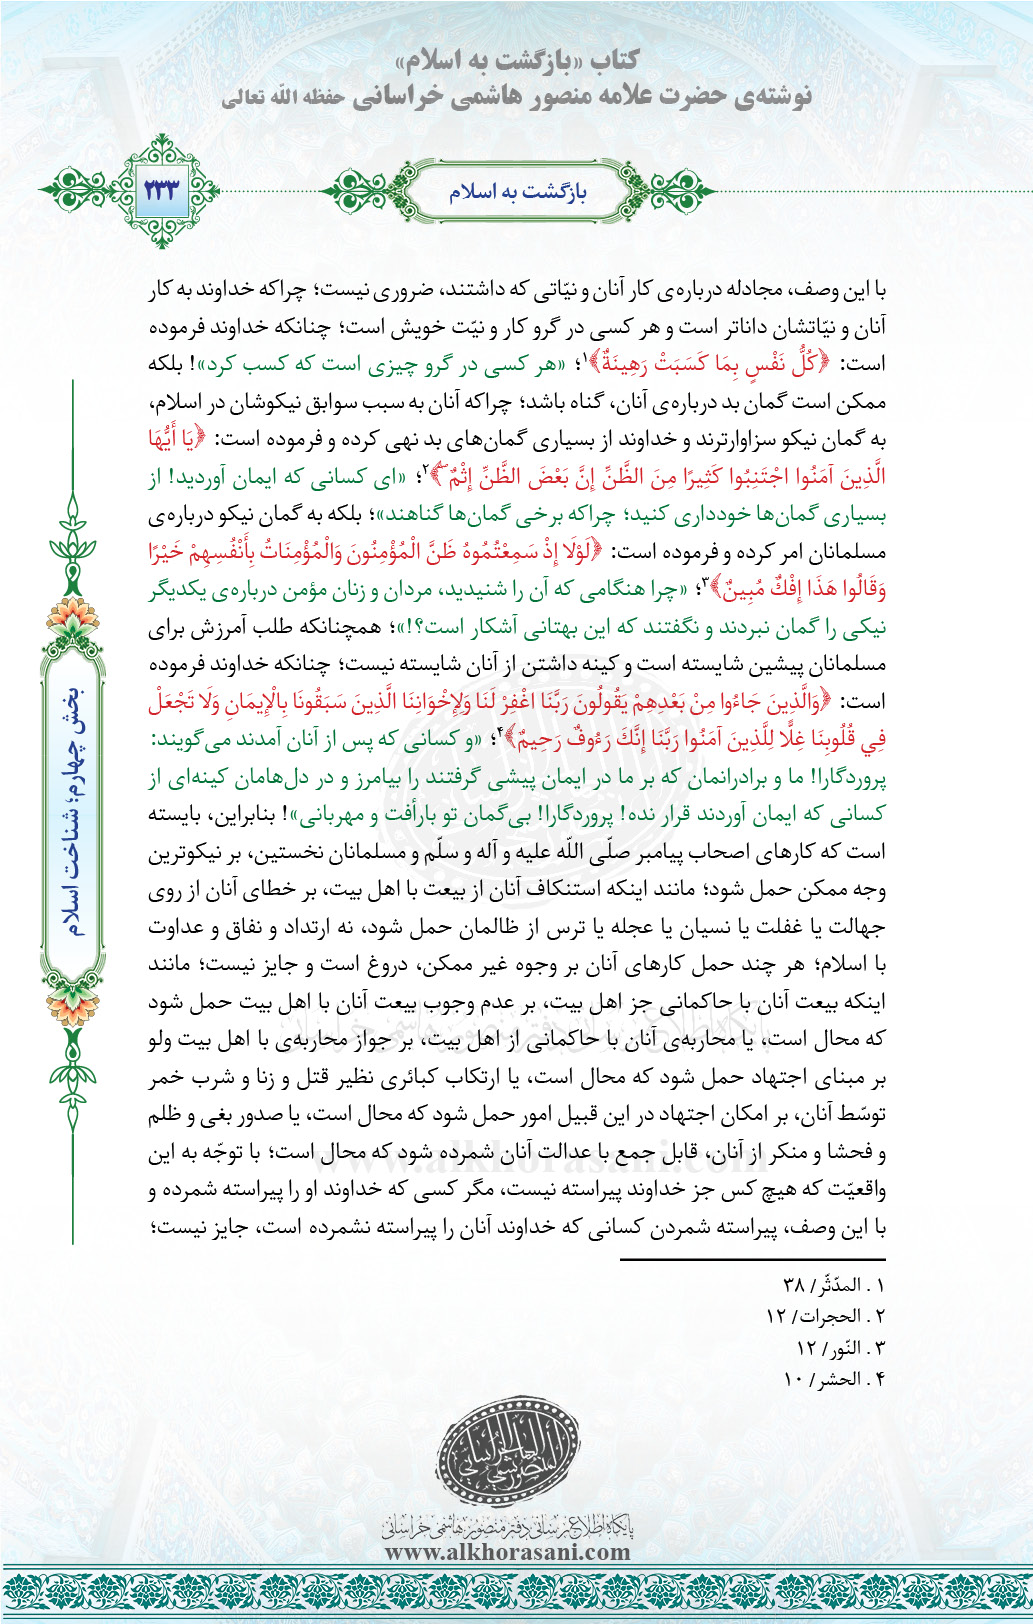 کتاب «بازگشت به اسلام»
نوشته‌ی حضرت علامه منصور هاشمی خراسانی حفظه الله تعالی
بازگشت به اسلام
۲۳۳
با این وصف، مجادله درباره‌ی کار آنان و نیّاتی که داشتند، ضروری نیست؛ چراکه خداوند به کار
آنان و نیّاتشان داناتر است و هر کسی در گرو کار و نیّت خویش است؛ چنانکه خداوند فرموده
است: ﴿كُلُّ نَفْسٍ بِمَا كَسَبَتْ رَهِينَةٌ﴾۱؛ «هر کسی در گرو چیزی است که کسب کرد»! بلکه
ممکن است گمان بد درباره‌ی آنان، گناه باشد؛ چراکه آنان به سبب سوابق نیکوشان در اسلام،
به گمان نیکو سزاوارترند و خداوند از بسیاری گمان‌های بد نهی کرده و فرموده است: ﴿يَا أَيُّهَا
الَّذِينَ آمَنُوا اجْتَنِبُوا كَثِيرًا مِنَ الظَّنِّ إِنَّ بَعْضَ الظَّنِّ إِثْمٌ ۖ﴾۲؛ «ای کسانی که ایمان آوردید! از
بسیاری گمان‌ها خودداری کنید؛ چراکه برخی گمان‌ها گناهند»؛ بلکه به گمان نیکو درباره‌ی
مسلمانان امر کرده و فرموده است: ﴿لَوْلَا إِذْ سَمِعْتُمُوهُ ظَنَّ الْمُؤْمِنُونَ وَالْمُؤْمِنَاتُ بِأَنْفُسِهِمْ خَيْرًا
وَقَالُوا هَذَا إِفْكٌ مُبِينٌ﴾۳؛ «چرا هنگامی که آن را شنیدید، مردان و زنان مؤمن درباره‌ی یکدیگر
نیکی را گمان نبردند و نگفتند که این بهتانی آشکار است؟!»؛ همچنانکه طلب آمرزش برای
مسلمانان پیشین شایسته است و کینه داشتن از آنان شایسته نیست؛ چنانکه خداوند فرموده
است: ﴿وَالَّذِينَ جَاءُوا مِنْ بَعْدِهِمْ يَقُولُونَ رَبَّنَا اغْفِرْ لَنَا وَلِإِخْوَانِنَا الَّذِينَ سَبَقُونَا بِالْإِيمَانِ وَلَا تَجْعَلْ
فِي قُلُوبِنَا غِلًّا لِلَّذِينَ آمَنُوا رَبَّنَا إِنَّكَ رَءُوفٌ رَحِيمٌ﴾۴؛ «و کسانی که پس از آنان آمدند می‌گویند:
پروردگارا! ما و برادرانمان که بر ما در ایمان پیشی گرفتند را بیامرز و در دل‌هامان کینه‌ای از
کسانی که ایمان آوردند قرار نده! پروردگارا! بی‌گمان تو بارأفت و مهربانی»! بنابراین، بایسته
است که کارهای اصحاب پیامبر صلّی الله علیه و آله و سلّم و مسلمانان نخستین، بر نیکوترین
وجه ممکن حمل شود؛ مانند اینکه استنکاف آنان از بیعت با اهل بیت، بر خطای آنان از روی
جهالت یا غفلت یا نسیان یا عجله یا ترس از ظالمان حمل شود، نه ارتداد و نفاق و عداوت
با اسلام؛ هر چند حمل کارهای آنان بر وجوه غیر ممکن، دروغ است و جایز نیست؛ مانند
اینکه بیعت آنان با حاکمانی جز اهل بیت، بر عدم وجوب بیعت آنان با اهل بیت حمل شود
که محال است، یا محاربه‌ی آنان با حاکمانی از اهل بیت، بر جواز محاربه‌ی با اهل بیت ولو
بر مبنای اجتهاد حمل شود که محال است، یا ارتکاب کبائری نظیر قتل و زنا و شرب خمر
توسّط آنان، بر امکان اجتهاد در این قبیل امور حمل شود که محال است، یا صدور بغی و ظلم
و فحشا و منکر از آنان، قابل جمع با عدالت آنان شمرده شود که محال است؛ با توجّه به این
واقعیّت که هیچ کس جز خداوند پیراسته نیست، مگر کسی که خداوند او را پیراسته شمرده و
با این وصف، پیراسته شمردن کسانی که خداوند آنان را پیراسته نشمرده است، جایز نیست؛
۱ . المدّثّر/ ۳۸
۲ . الحجرات/ ۱۲
۳ . النّور/ ۱۲
۴ . الحشر/ ۱۰
بخش چهارم؛ شناخت اسلام
پایگاه اطلاع‌رسانی دفتر منصور هاشمی خراسانی
www.alkhorasani.com
پایگاه اطلاع‌رسانی دفتر منصور هاشمی خراسانی
www.alkhorasani.com